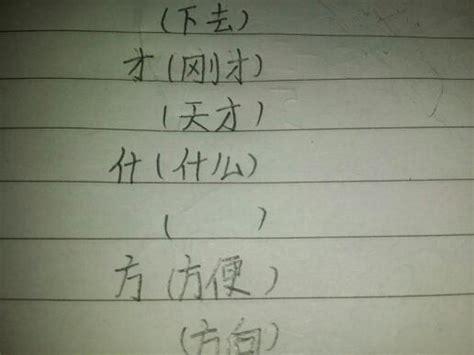 (下去)
才(刚才)
(天才)
什(什么)
(  )
方(方便)
(方向)